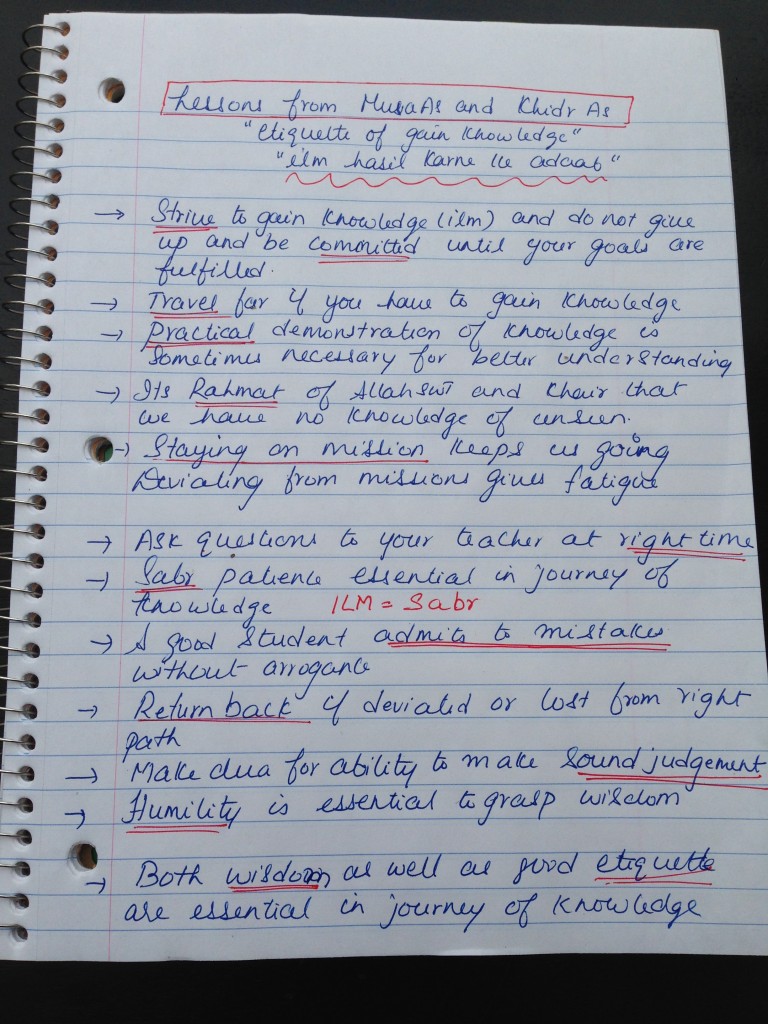 Lessons from Musa As and Khidr As
"etiquette of gain knowledge"
"ilm hasil karne ke adaab"
→ Strive to gain knowledge (ilm) and do not give
up and be committed until your goals are
fulfilled.
→ Travel far if you have to gain knowledge
→ Practical demonstration of knowledge is
sometimes necessary for better understanding
→ Its Rahmat of Allah swt and Khair that
we have no knowledge of unseen.
→ Staying on mission keeps us going
Deviating from missions gives fatigue
→ Ask questions to your teacher at right time
→ Sabr patience essential in journey of
knowledge ILM = Sabr
→ A good student admits to mistakes
without arrogance
→ Return back if deviated or lost from right
path
→ Make dua for ability to make sound judgement
→ Humility is essential to grasp wisdom
→ Both wisdom as well as good etiquette
are essential in journey of knowledge